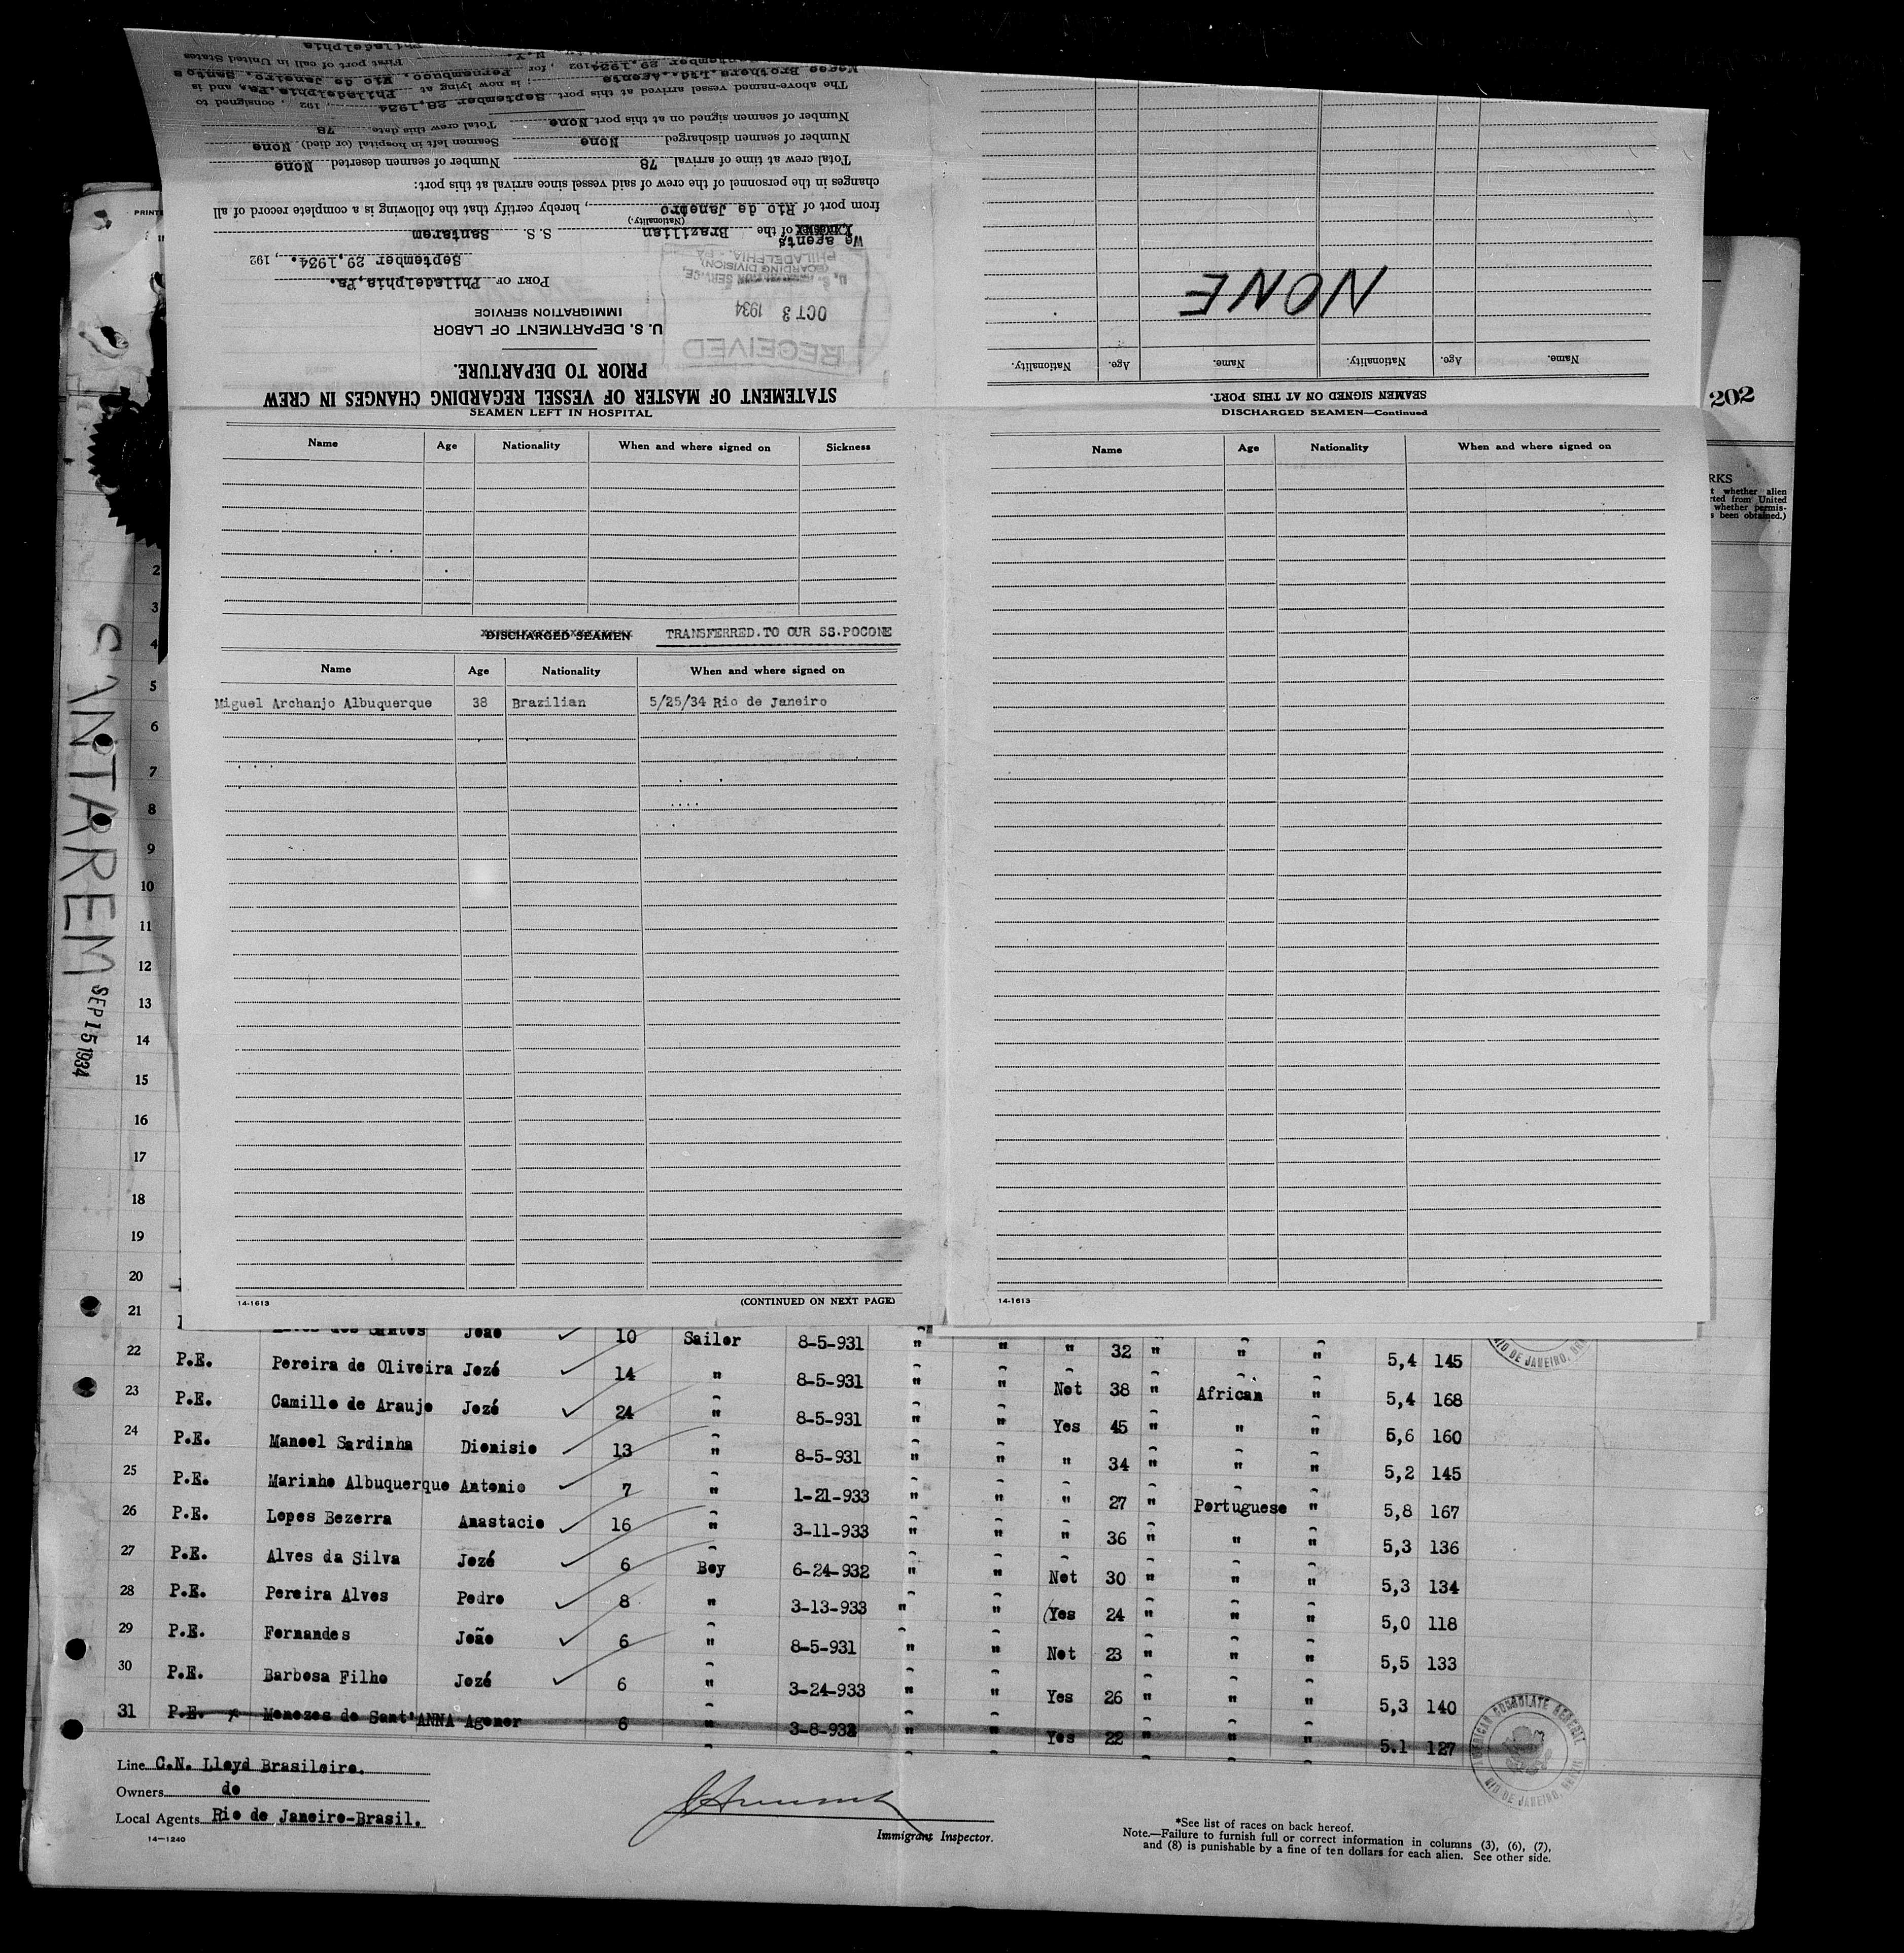 STATEMENT OF MASTER OF VESSEL REGARDING CHANGES IN CREW
PRIOR TO DEPARTURE.
U. S. DEPARTMENT OF LABOR
IMMIGRATION SERVICE
RECEIVED
OCT 3 1934
U. S. IMMIGRATION SERVICE,
(BOARDING DIVISION)
PHILADELPHIA, PA.
PORT OF Philadelphia,Pa.
September 29,1934., 192
We agents
of the Brazilian S. S. Santarem
(Nationality.)
from port of Rio de Janeiro, hereby certify that the following is a complete record of all
changes in the personnel of the crew of said vessel since arrival at this port:
Total crew at time of arrival 78 Number of seamen deserted None
Number of seamen discharged None Seamen left in hospital (or died) None
Number of seamen signed on at this port None Total crew this date 78
The above-named vessel arrived at this port September 28,1934, 192 , consigned to
Brothers Ltd., Agents ; is now lying at Philadelphia,Pa, and is
September 29,1934, 192 , for Pernambuco, Rio de Janeiro, Santos
N.Y. First port of call in United States
Philadelphia
SEAMEN SIGNED ON AT THIS PORT.
Name. Age. Nationality. Name. Age. Nationality.
NONE
SEAMEN LEFT IN HOSPITAL
Name Age Nationality When and where signed on Sickness
DISCHARGED SEAMEN TRANSFERRED.TO OUR SS.POCONE
Name Age Nationality When and where signed on
Miguel Archanjo Albuquerque 38 Brazilian 5/25/34 Rio de Janeiro
14-1613 (CONTINUED ON NEXT PAGE)
DISCHARGED SEAMEN—Continued
Name Age Nationality When and where signed on
14-1613
202
RKS
t whether alien
rted from United
whether permis-
s been obtained.)
SANTAREM SEP 15 1934
2
3
4
5
6
7
8
9
10
11
12
13
14
15
16
17
18
19
20
21 dos Santos João 10 Sailor 8-5-931 " " " 32 " " " 5,4 145
22 P.E. Pereira de Oliveira Jozé 14 " 8-5-931 " " Not 38 " African " 5,4 168
23 P.E. Camillo de Araujo Jozé 24 " 8-5-931 " " Yes 45 " " " 5,6 160
24 P.E. Manoel Sardinha Dionisio 13 " 8-5-931 " " " 34 " " " 5,2 145
25 P.E. Marinho Albuquerque Antonio 7 " 1-21-933 " " " 27 " Portuguese " 5,8 167
26 P.E. Lopes Bezerra Anastacio 16 " 3-11-933 " " " 36 " " " 5,3 136
27 P.E. Alves da Silva Jozé 6 Boy 6-24-932 " " Not 30 " " " 5,3 134
28 P.E. Pereira Alves Pedro 8 " 3-13-933 " " Yes 24 " " " 5,0 118
29 P.E. Fernandes João 6 " 8-5-931 " " Not 23 " " " 5,5 133
30 P.E. Barbosa Filho Jozé 6 " 3-24-933 " " Yes 26 " " " 5,3 140
31 P.E. Menezes de Sant'ANNA Agenor 6 " 3-8-933 " " Yes 22 " " " 5.1 127
AMERICAN CONSULATE GENERAL
RIO DE JANEIRO, BRAZIL
Line C.N. Lloyd Brasileiro.
Owners do
Local Agents Rio de Janeiro-Brasil.
14—1240
Immigrant Inspector.
*See list of races on back hereof.
Note.—Failure to furnish full or correct information in columns (3), (6), (7),
and (8) is punishable by a fine of ten dollars for each alien. See other side.